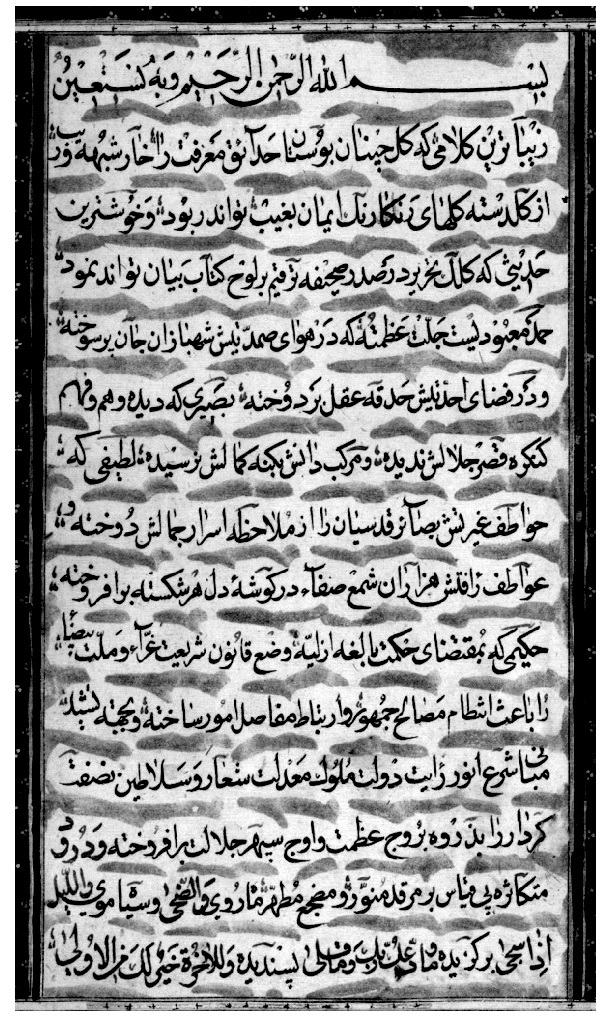 بسم الله الرحمن الرحیم وبه نستعین
زیباترین کلامی که کل چینان بوستان حدائق معرفت را خار شبهه وریب
از کلدسته کلهای رنکارنک ایمان بغیب تواند ربود وخوشترین
حدیثی که کلک تحریر در صدر صحیفه ترقیم بر لوح کتاب بیان تواند نمود
حمد معبودیست جلت عظمته که در هوای صمدیتش شهبازان جان پر سوخته
ودر فضای احدیتش حدقه عقل بردوخته بصیری که دیده وهم وفهم
کنکره قصر جلالش ندیده ومرکب دانش بکنه کمالش نرسیده لطیفی که
خواطف غیرتش بصائر قدسیان را از ملاحظه اسرار جمالش دوخته و
عواطف رافتش هزاران شمع صفاء در کوشهٔ دل هر شکسته برافروخته
حکیمی که بمقتضای حکمت بالغه ازلیه وضع قانون شریعت غراء وملت بیضا
را باعث انتظام مصالح جمهور وارتباط مفاصل امور ساخته وبجهته تشیید
مبانی شرع انور رایت دولت ملوک معدلت شعار وسلاطین نصفت
کردار را بذروه بروج عظمت واوج سپهر جلالت برافروخته ودرود
متکاثره بی قیاس بر مرقد منور ومضجع مطهر ماه روی والضحی وسیاه موی واللیل
اذا سجی برکزیده ما ودعک ربک وما قلی پسندیده وللاخرة خیر لک من الاولی